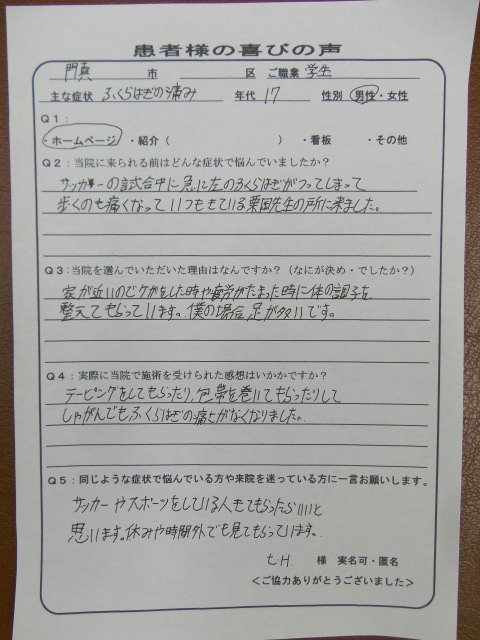 患者様の喜びの声
門真 市 区 ご職業 学生
主な症状 ふくらはぎの痛み 年代 17 性別 男性・女性
Q1：
・ホームページ ・紹介（ ） ・看板 ・その他
Q2：当院に来られる前はどんな症状で悩んでいましたか？
サッカーの試合中に急に左のふくらはぎがつってしまって
歩くのも痛くなって いつもきている栗岡先生の所に来ました。
Q3：当院を選んでいただいた理由はなんですか？（なにが決め・でしたか？）
家が近いのでケガをした時や疲労がたまった時に体の調子を
整えてもらっています。僕の場合足が多いです。
Q4：実際に当院で施術を受けられた感想はいかかですか？
テーピングをしてもらったり、包帯を巻いてもらったりして
しゃがんでもふくらはぎの痛さがなくなりました。
Q5：同じような症状で悩んでいる方や来院を迷っている方に一言お願いします。
サッカーやスポーツをしている人もてもらったらいいと
思います。休みや時間外でも見てもらっています。
t.H. 様 実名可・匿名
＜ご協力ありがとうございました＞